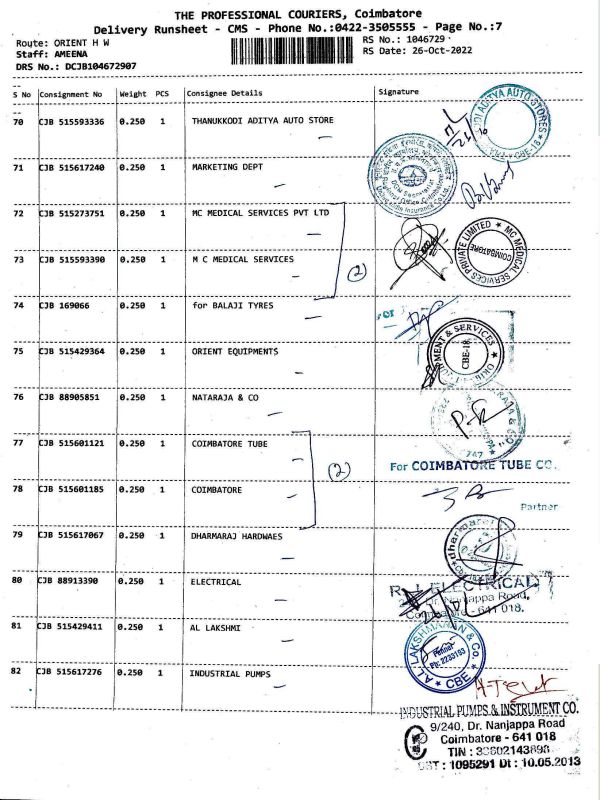 THE PROFESSIONAL COURIERS, Coimbatore
Delivery Runsheet - CMS - Phone No.:0422-3505555 - Page No.:7
Route: ORIENT H W
RS No.: 1046729
Staff: AMEENA
RS Date: 26-Oct-2022
DRS No.: DCJB104672907
S No Consignment No Weight PCS Consignee Details Signature
70 CJB 515593336 0.250 1 THANUKKODI ADITYA AUTO STORE
ADITYA AUTO STORES
CBE-18
71 CJB 515617240 0.250 1 MARKETING DEPT
72 CJB 515273751 0.250 1 MC MEDICAL SERVICES PVT LTD
MC MEDICAL SERVICES PRIVATE LIMITED
COIMBATORE
73 CJB 515593390 0.250 1 M C MEDICAL SERVICES
(2)
74 CJB 169066 0.250 1 for BALAJI TYRES
75 CJB 515429364 0.250 1 ORIENT EQUIPMENTS
& SERVICES
CBE-18
76 CJB 88905851 0.250 1 NATARAJA & CO
77 CJB 515601121 0.250 1 COIMBATORE TUBE
(2)
For COIMBATORE TUBE CO.
78 CJB 515601185 0.250 1 COIMBATORE
Partner
79 CJB 515617067 0.250 1 DHARMARAJ HARDWAES
dharmaraj
80 CJB 88913390 0.250 1 ELECTRICAL
ELECTRICAL
Dr. Nanjappa Road,
Coimbatore - 641 018.
81 CJB 515429411 0.250 1 AL LAKSHMI
AL LAKSHMANAN & Co.
Ph: 2230193
CBE
82 CJB 515617276 0.250 1 INDUSTRIAL PUMPS
INDUSTRIAL PUMPS & INSTRUMENT CO.
9/240, Dr. Nanjappa Road
Coimbatore - 641 018
TIN : 33602143898
CST : 1095291 Dt : 10.05.2013